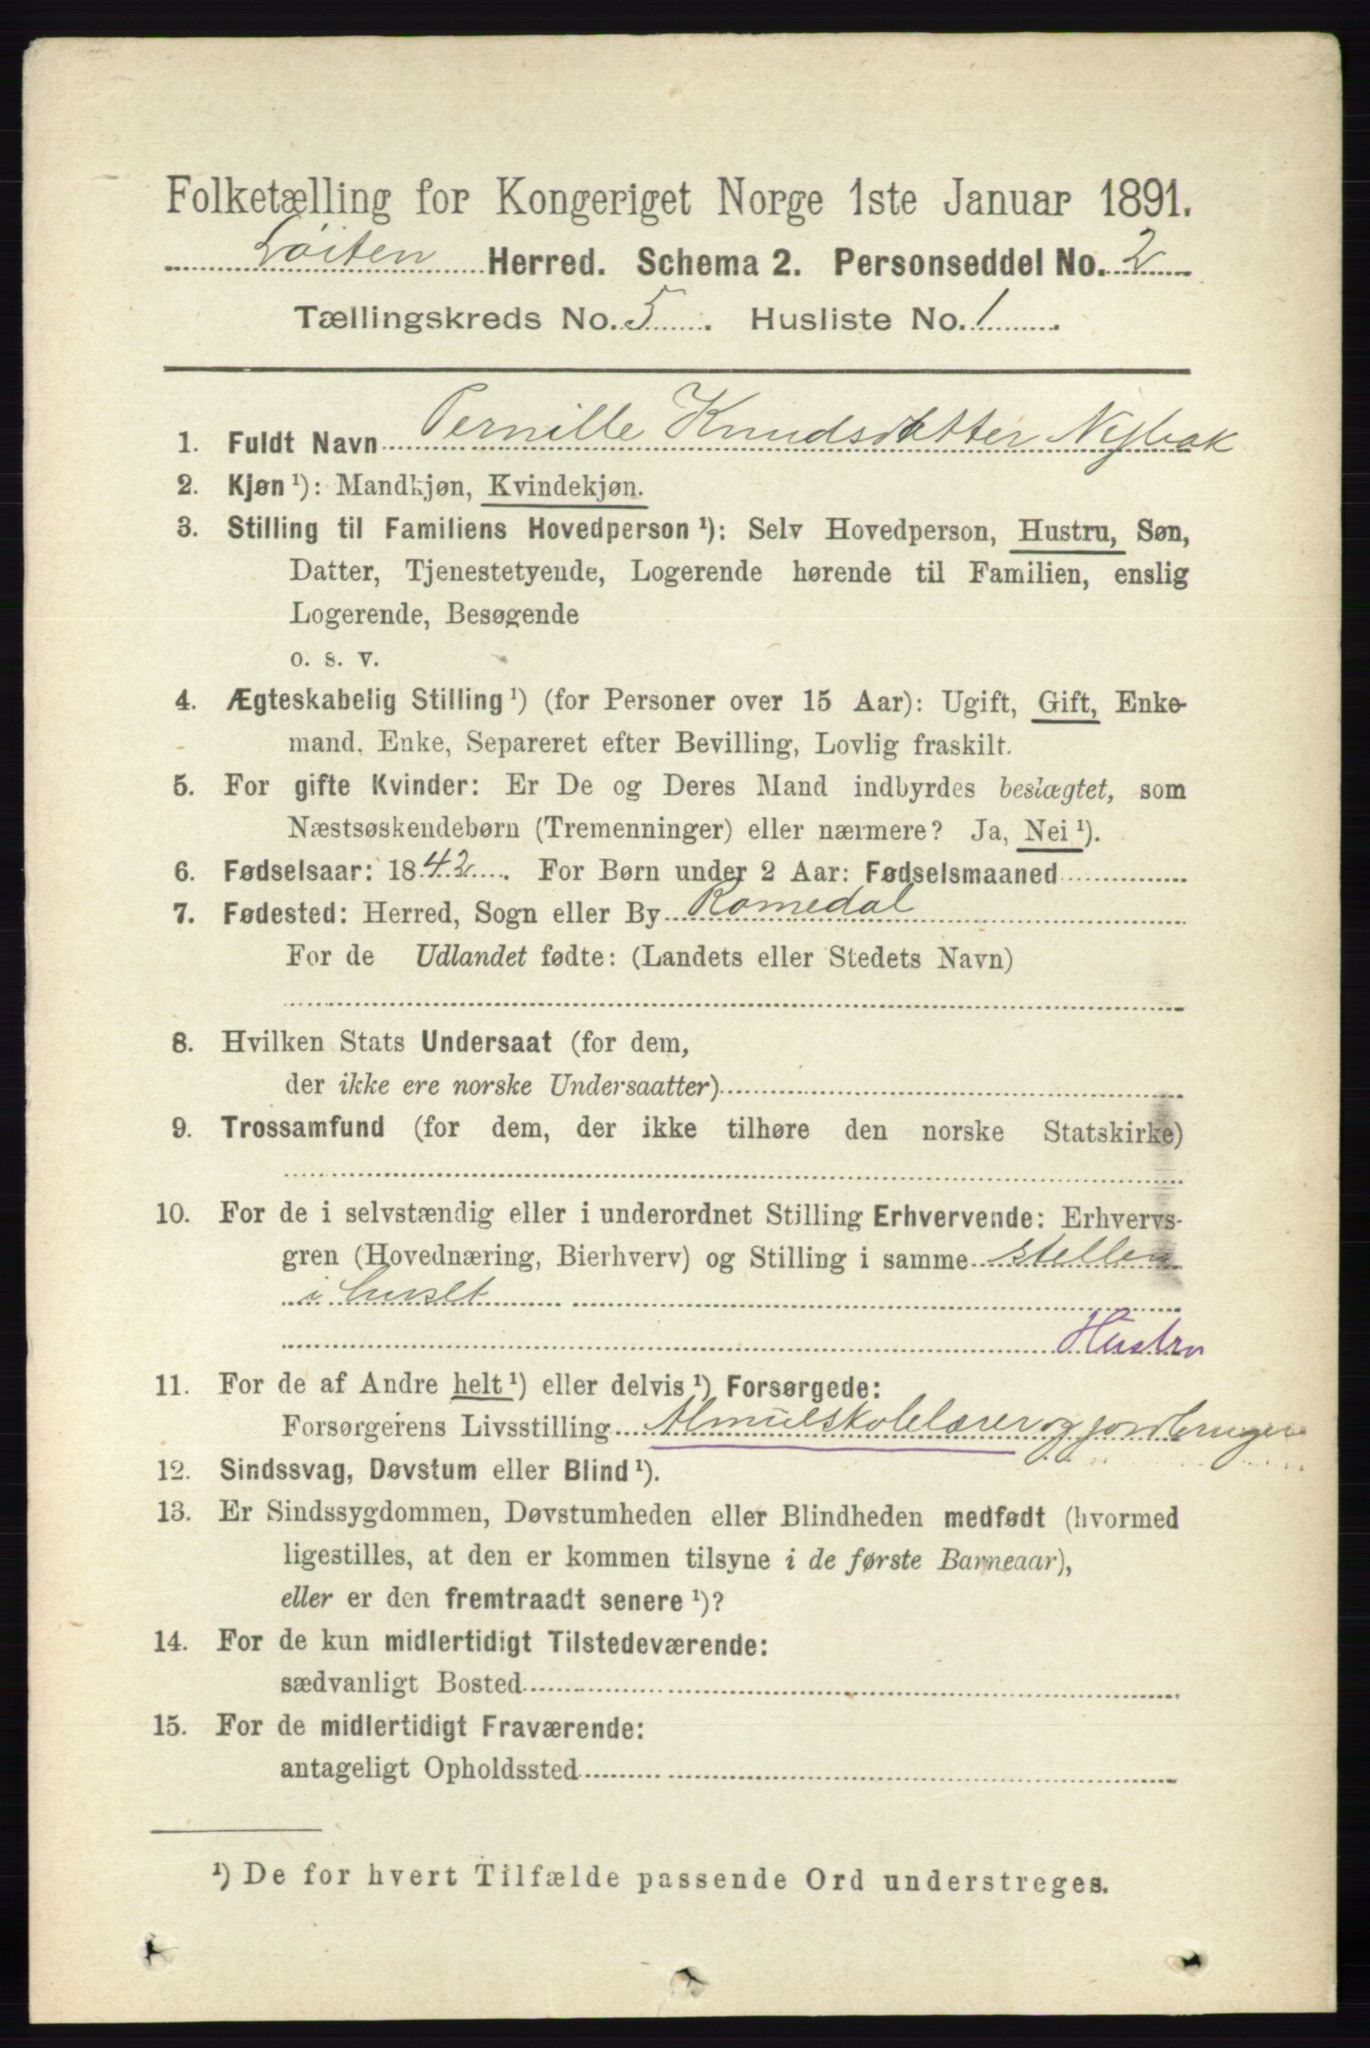 Folketælling for Kongeriget Norge 1ste Januar 1891.
Löiten Herred. Schema 2. Personseddel No. 2
Tællingskreds No. 5. Husliste No. 1
1. Fuldt Navn Pernille Knudsdatter Nybak
2. Kjøn ¹): Mandkjøn, Kvindekjøn.
3. Stilling til Familiens Hovedperson ¹): Selv Hovedperson, Hustru, Søn,
Datter, Tjenestetyende, Logerende hørende til Familien, enslig
Logerende, Besøgende
o. s. v.
4. Ægteskabelig Stilling ¹) (for Personer over 15 Aar): Ugift, Gift, Enke-
mand, Enke, Separeret efter Bevilling, Lovlig fraskilt.
5. For gifte Kvinder: Er De og Deres Mand indbyrdes beslægtet, som
Næstsøskendebørn (Tremenninger) eller nærmere? Ja, Nei ¹).
6. Fødselsaar: 1842. For Børn under 2 Aar: Fødselsmaaned
7. Fødested: Herred, Sogn eller By Romedal
For de Udlandet fødte: (Landets eller Stedets Navn)
8. Hvilken Stats Undersaat (for dem,
der ikke ere norske Undersaatter)
9. Trossamfund (for dem, der ikke tilhøre den norske Statskirke)
10. For de i selvstændig eller i underordnet Stilling Erhvervende: Erhvervs-
gren (Hovednæring, Bierhverv) og Stilling i samme steller
i huset
Hustru
11. For de af Andre helt ¹) eller delvis ¹) Forsørgede:
Forsørgerens Livsstilling Almuskolelærer og jordbruger
12. Sindssvag, Døvstum eller Blind ¹).
13. Er Sindssygdommen, Døvstumheden eller Blindheden medfødt (hvormed
ligestilles, at den er kommen tilsyne i de første Barneaar),
eller er den fremtraadt senere ¹)?
14. For de kun midlertidigt Tilstedeværende:
sædvanligt Bosted
15. For de midlertidigt Fraværende:
antageligt Opholdssted
¹) De for hvert Tilfælde passende Ord understreges.